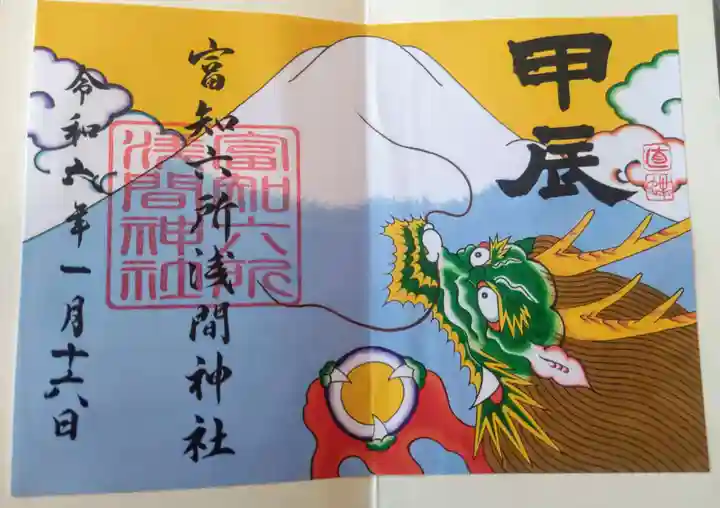 甲辰
富知六所浅間神社
富知六所
浅間神社
令和六年一月十六日